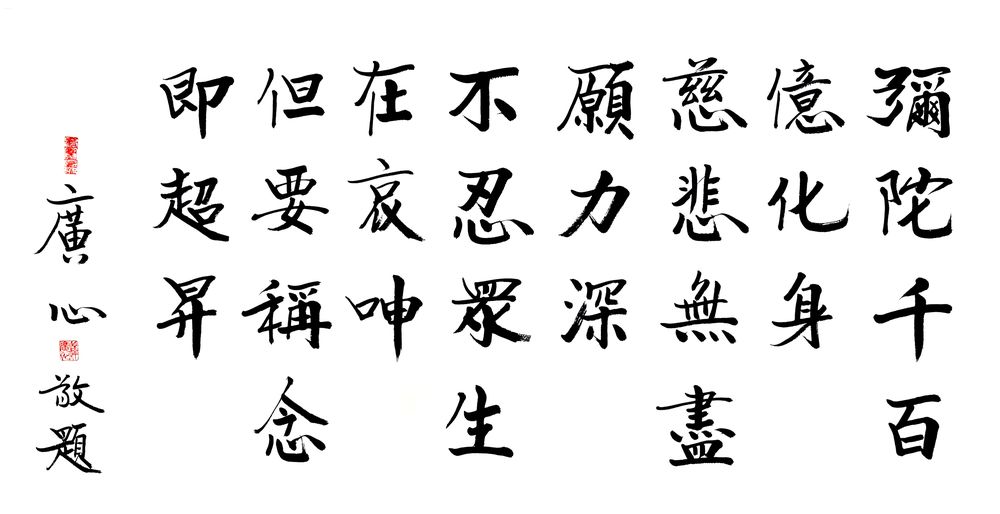 彌陀千百
億化身
慈悲無盡
願力深
不忍眾生
在哀呻
但要稱念
即超昇
廣心敬題